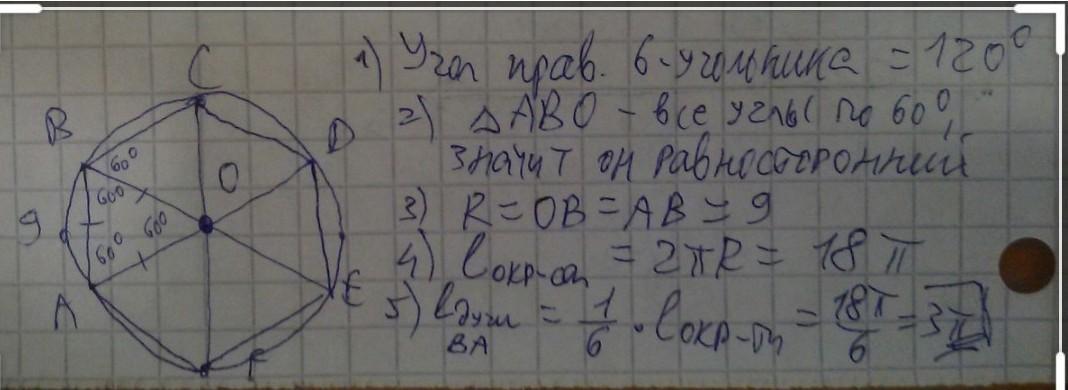 C
B
D
O
60°
60°
60°
60°
9
A
E
F
1) Угол прав. 6-угольника = 120°
2) △ABO - все углы по 60°,
значит он равносторонний
3) R = OB = AB = 9
4) lокр-сти = 2πR = 18π
5) lдуги BA = 1/6 · lокр-ти = 18π/6 = 3π